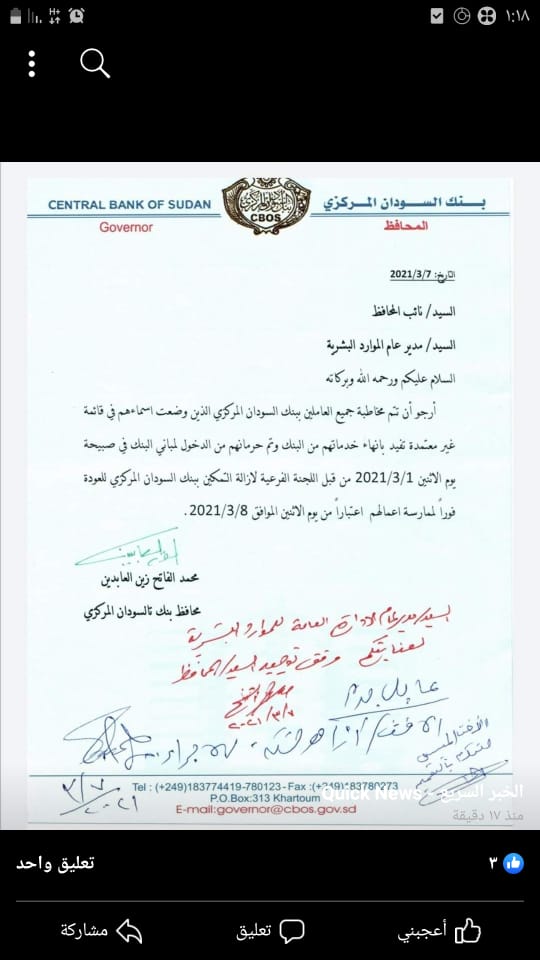 H+
١:١٨
CENTRAL BANK OF SUDAN
Governor
CBOS
بنك السودان المركزي
المحافظ
التاريخ: 2021/3/7
السيد/ نائب المحافظ
السيد/ مدير عام الموارد البشرية
السلام عليكم ورحمه الله وبركاته
أرجو أن تتم مخاطبة جميع العاملين ببنك السودان المركزي الذين وضعت اسماءهم في قائمة
غير معتمدة تفيد بانهاء خدماتهم من البنك وتم حرمانهم من الدخول لمباني البنك في صبيحة
يوم الاثنين 2021/3/1 من قبل اللجنة الفرعية لازالة التمكين ببنك السودان المركزي للعودة
فوراً لممارسة اعمالهم اعتباراً من يوم الاثنين الموافق 2021/3/8 .
محمد الفاتح زين العابدين
محافظ بنك تالسودان المركزي
السيد/ مدير عام الادارة العامة للموارد البشرية
لعنايتكم مرفق توجيه السيد/ المحافظ
٢٠٢١/٣/٧
عاجل جدا
٢٠٢١
Tel : (+249)183774419-780123 - Fax :(+249)183780273
P.O.Box:313 Khartoum
E-mail:governor@cbos.gov.sd
الخبر السريع - Quick News
منذ ١٧ دقيقة
٣
تعليق واحد
أعجبني
تعليق
مشاركة